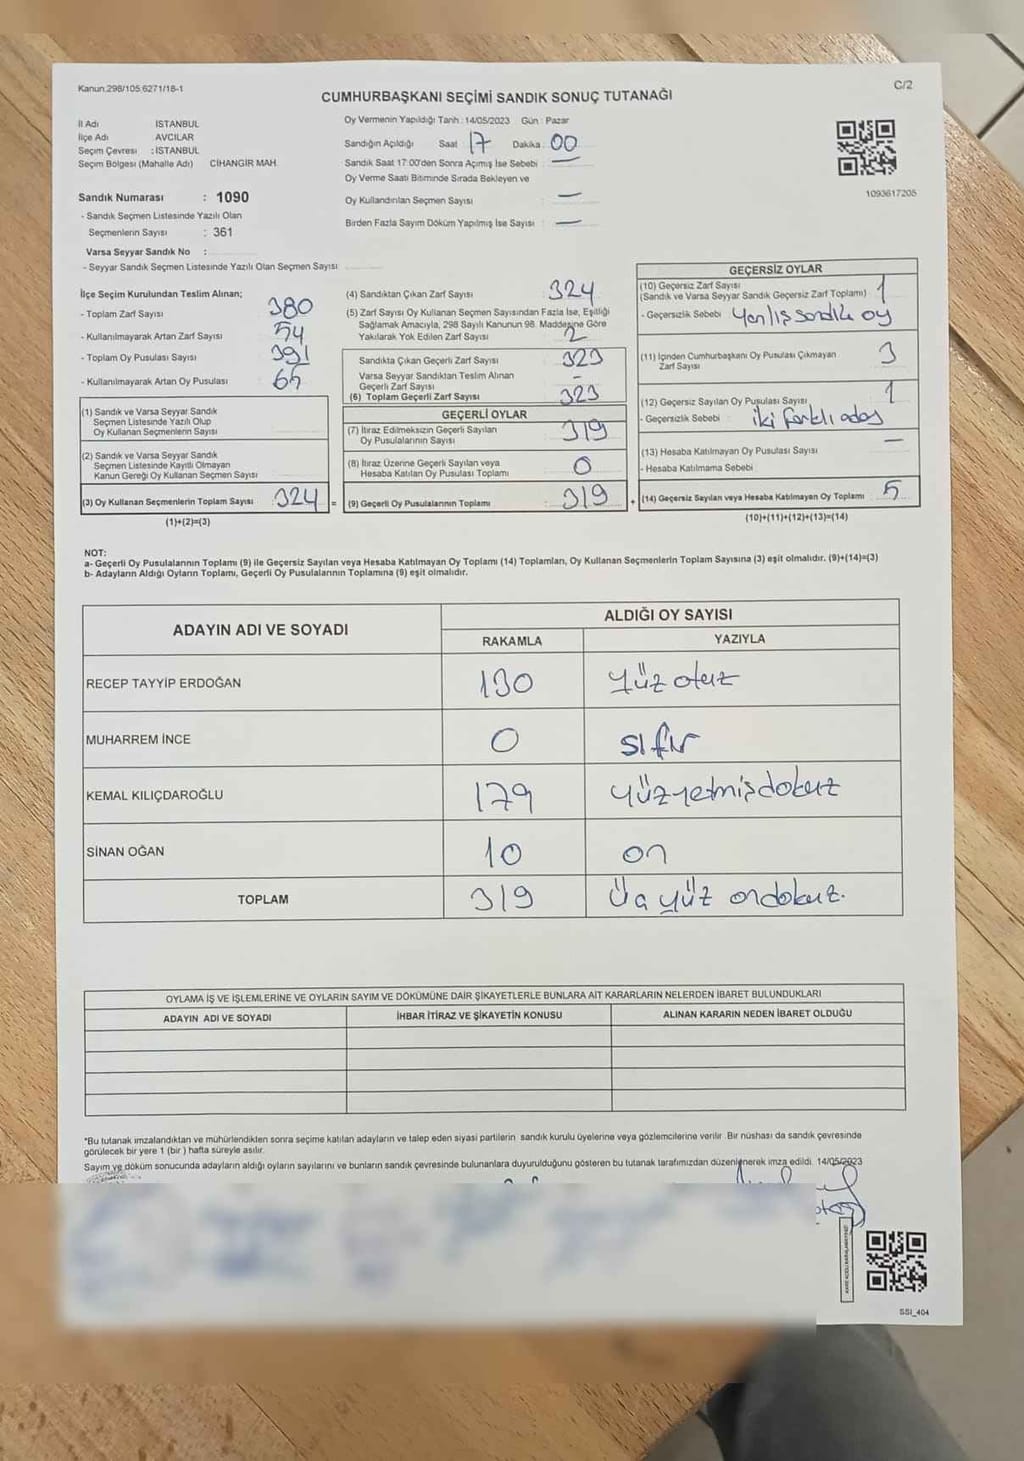 Kanun.298/105.6271/18-1
C/2
CUMHURBAŞKANI SEÇİMİ SANDIK SONUÇ TUTANAĞI
İl Adı İSTANBUL
İlçe Adı AVCILAR
Seçim Çevresi : İSTANBUL
Seçim Bölgesi (Mahalle Adı) CİHANGİR MAH.
Sandık Numarası : 1090
- Sandık Seçmen Listesinde Yazılı Olan
Seçmenlerin Sayısı : 361
Varsa Seyyar Sandık No :
- Seyyar Sandık Seçmen Listesinde Yazılı Olan Seçmen Sayısı
Oy Vermenin Yapıldığı Tarih : 14/05/2023 Gün : Pazar
Sandığın Açıldığı Saat 17 Dakika : 00
Sandık Saat 17:00'den Sonra Açımış İse Sebebi : —
Oy Verme Saati Bitiminde Sırada Bekleyen ve
Oy Kullandırılan Seçmen Sayısı —
Birden Fazla Sayım Döküm Yapılmış İse Sayısı : —
1093617205
İlçe Seçim Kurulundan Teslim Alınan;
- Toplam Zarf Sayısı 380
- Kullanılmayarak Artan Zarf Sayısı 54
- Toplam Oy Pusulası Sayısı 391
- Kullanılmayarak Artan Oy Pusulası 65
(1) Sandık ve Varsa Seyyar Sandık
Seçmen Listesinde Yazılı Olup
Oy Kullanan Seçmenlerin Sayısı
(2) Sandık ve Varsa Seyyar Sandık
Seçmen Listesinde Kayıtlı Olmayan
Kanun Gereği Oy Kullanan Seçmen Sayısı
(3) Oy Kullanan Seçmenlerin Toplam Sayısı 324 =
(1)+(2)=(3)
(4) Sandıktan Çıkan Zarf Sayısı 324
(5) Zarf Sayısı Oy Kullanan Seçmen Sayısından Fazla İse, Eşitliği
Sağlamak Amacıyla, 298 Sayılı Kanunun 98. Maddesine Göre
Yakılarak Yok Edilen Zarf Sayısı 2
Sandıkta Çıkan Geçerli Zarf Sayısı 323
Varsa Seyyar Sandıktan Teslim Alınan
Geçerli Zarf Sayısı -
(6) Toplam Geçerli Zarf Sayısı 323
GEÇERLİ OYLAR
(7) İtiraz Edilmeksizin Geçerli Sayılan
Oy Pusulalarının Sayısı 319
(8) İtiraz Üzerine Geçerli Sayılan veya
Hesaba Katılan Oy Pusulası Toplamı 0
(9) Geçerli Oy Pusulalarının Toplamı 319 +
GEÇERSİZ OYLAR
(10) Geçersiz Zarf Sayısı
(Sandık ve Varsa Seyyar Sandık Geçersiz Zarf Toplamı) 1
- Geçersizlik Sebebi Yanlış sandık oy
(11) İçinden Cumhurbaşkanı Oy Pusulası Çıkmayan
Zarf Sayısı 3
(12) Geçersiz Sayılan Oy Pusulası Sayısı 1
- Geçersizlik Sebebi iki farklı aday
(13) Hesaba Katılmayan Oy Pusulası Sayısı —
- Hesaba Katılmama Sebebi
(14) Geçersiz Sayılan veya Hesaba Katılmayan Oy Toplamı 5
(10)+(11)+(12)+(13)=(14)
NOT:
a- Geçerli Oy Pusulalarının Toplamı (9) ile Geçersiz Sayılan veya Hesaba Katılmayan Oy Toplamı (14) Toplamları, Oy Kullanan Seçmenlerin Toplam Sayısına (3) eşit olmalıdır. (9)+(14)=(3)
b- Adayların Aldığı Oyların Toplamı, Geçerli Oy Pusulalarının Toplamına (9) eşit olmalıdır.
ADAYIN ADI VE SOYADI
ALDIĞI OY SAYISI
RAKAMLA YAZIYLA
RECEP TAYYİP ERDOĞAN 130 Yüz otuz
MUHARREM İNCE 0 sıfır
KEMAL KILIÇDAROĞLU 179 yüzyetmişdokuz
SİNAN OĞAN 10 on
TOPLAM 319 Üç yüz ondokuz.
OYLAMA İŞ VE İŞLEMLERİNE VE OYLARIN SAYIM VE DÖKÜMÜNE DAİR ŞİKAYETLERLE BUNLARA AİT KARARLARIN NELERDEN İBARET BULUNDUKLARI
ADAYIN ADI VE SOYADI İHBAR İTİRAZ VE ŞİKAYETİN KONUSU ALINAN KARARIN NEDEN İBARET OLDUĞU
*Bu tutanak imzalandıktan ve mühürlendikten sonra seçime katılan adayların ve talep eden siyasi partilerin sandık kurulu üyelerine veya gözlemcilerine verilir. Bir nüshası da sandık çevresinde
görülecek bir yere 1 (bir ) hafta süreyle asılır.
Sayım ve döküm sonucunda adayların aldığı oyların sayılarını ve bunların sandık çevresinde bulunanlara duyurulduğunu gösteren bu tutanak tarafımızdan düzenlenerek imza edildi. 14/05/2023
SSI_404